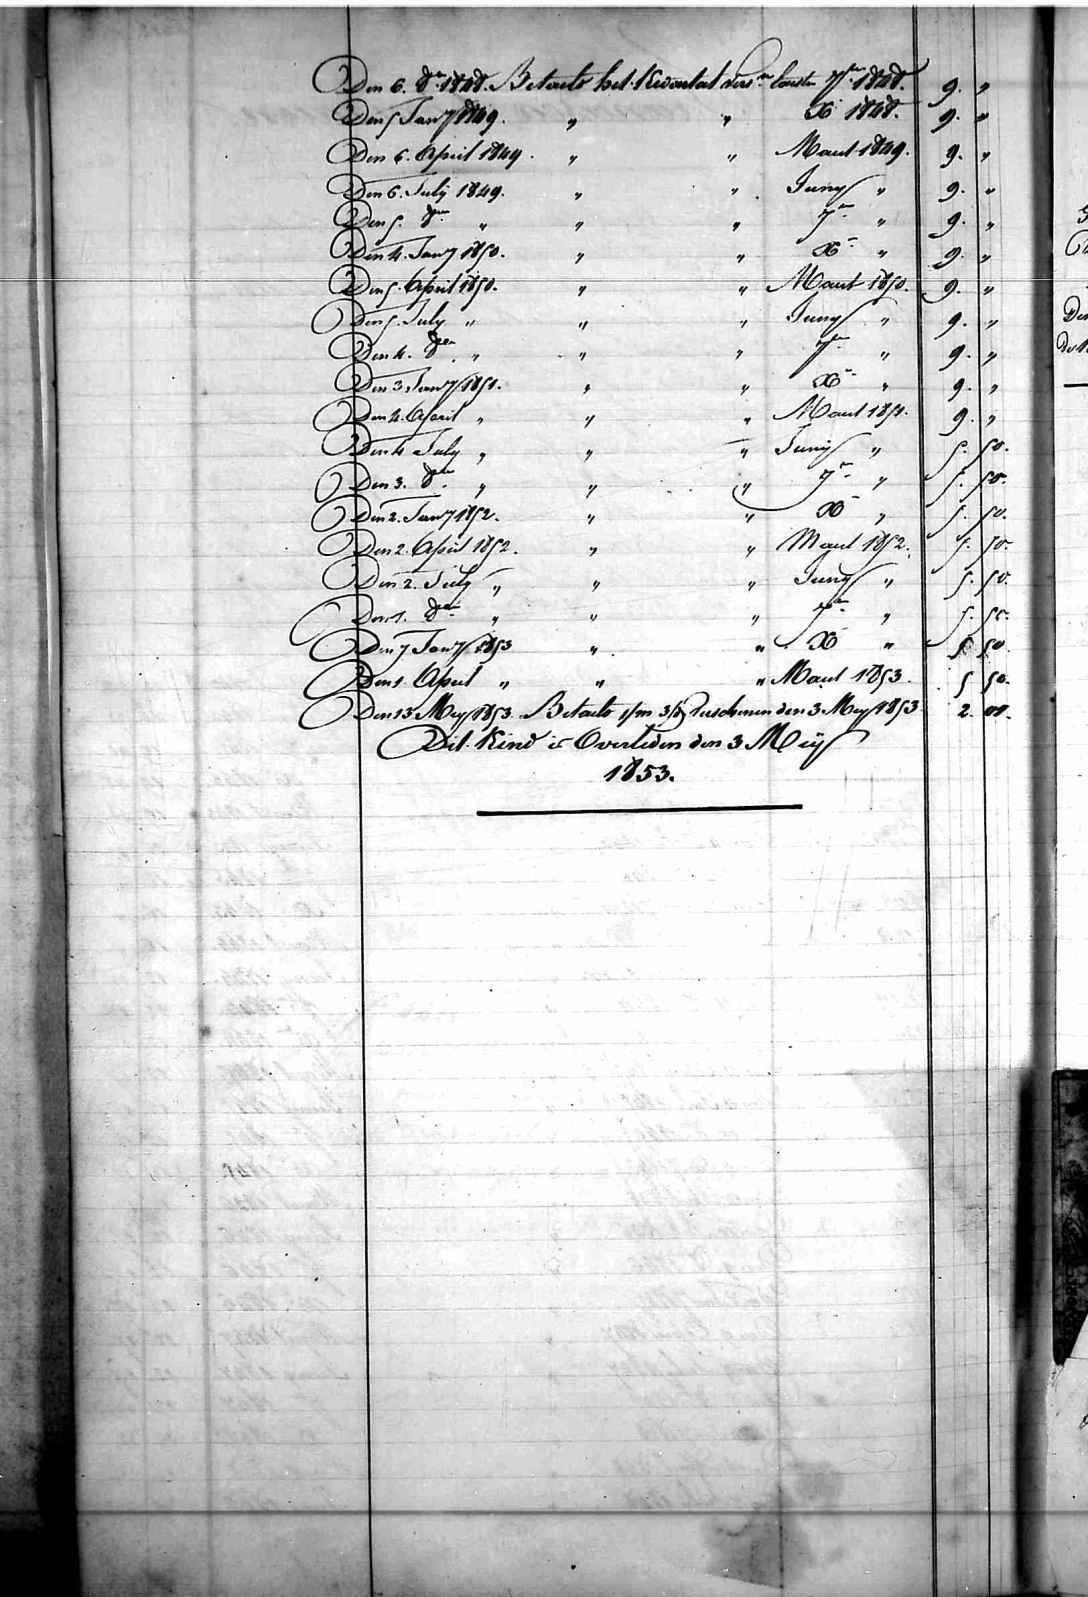 Den 6. 8br 1848. Betaald het Kwartaal versn laatsten 7br 1848. 9. "
Den 5 Jany 1849. " " Xr 1848. 9. "
Den 6. April 1849. " " Maart 1849. 9. "
Den 6. July 1849. " " Juny " 9. "
Den 5. 8br " " " 7br " 9. "
Den 4. Jany 1850. " " Xr " 9. "
Den 5. April 1850. " " Maart 1850. 9. "
Den 5. July " " " Juny " 9. "
Den 4. 8br " " " 7br " 9. "
Den 3 Jany 1851. " " Xr " 9. "
Den 4. April " " " Maart 1851. 9. "
Den 4 July " " " Juny " 5. 50.
Den 3. 8br " " " 7br " 5. 50.
Den 2. Jany 1852. " " Xr " 5. 50.
Den 2. April 1852. " " Maart 1852. 5. 50.
Den 2. July " " " Juny " 5. 50.
Den 1. 8br " " " 7br " 5. 50.
Den 7 Jany 1853 " " Xr " 5 50
Den 1 April " " " Maart 1853. 5 50.
Den 13 Mey 1853. Betaald 1/m 3/d verschenen den 3 Mey 1853 2.
Dit Kind is Overleden den 3 Mey
1853.